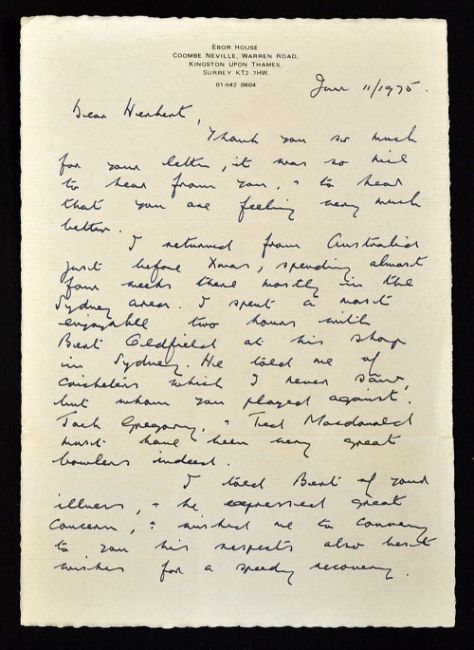 EBOR HOUSE
COOMBE NEVILLE, WARREN ROAD,
KINGSTON UPON THAMES,
SURREY KT2 7HW.
01-942 0604
Jan 11/1975.
Dear Herbert,
Thank you so much
for your letter, it was so nice
to hear from you, & to hear
that you are feeling very much
better.
I returned from Australia
just before Xmas, spending almost
four weeks there mostly in the
Sydney area. I spent a most
enjoyable two hours with
Bert Oldfield at his shop
in Sydney. He told me of
cricketers which I never saw,
but whom you played against.
Jack Gregory, & Ted Macdonald
must have been very great
bowlers indeed.
I told Bert of your
illness, & he expressed great
concern, & wished me to convey
to you his respects also best
wishes for a speedy recovery.